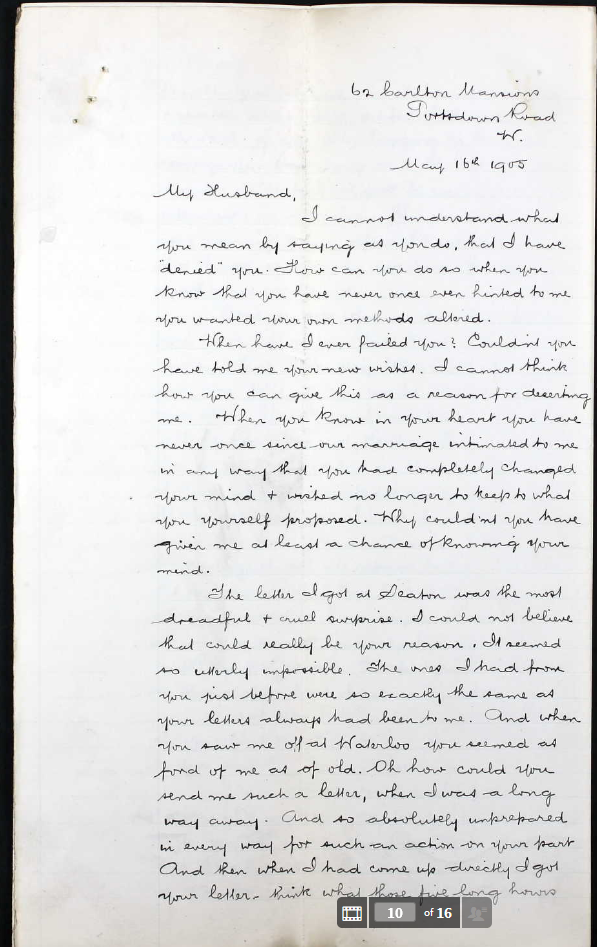 62 Carlton Mansions
Portsdown Road
W.
May 16th 1905
My Husband,
I cannot understand what
you mean by saying as you do, that I have
"denied" you. How can you do so when you
know that you have never once even hinted to me
you wanted your own methods altered.
When have I ever failed you? Couldnt you
have told me your new wishes. I cannot think
how you can give this as a reason for deserting
me. When you know in your heart you have
never once since our marriage intimated to me
in any way that you had completely changed
your mind + wished no longer to keep to what
you yourself proposed. Why could'nt you have
given me at least a chance of knowing your
mind.
The letter I got at Seaton was the most
dreadful + cruel surprise. I could not believe
that could really be your reason. It seemed
so utterly impossible. The ones I had from
you just before were so exactly the same as
your letters always had been to me. And when
you saw me off at Waterloo you seemed as
fond of me as of old. Oh how could you
send me such a letter, when I was a long
way away. And so absolutely unprepared
in every way for such an action on your part
And then when I had come up directly I got
your letter - think what those five long hours
10 of 16